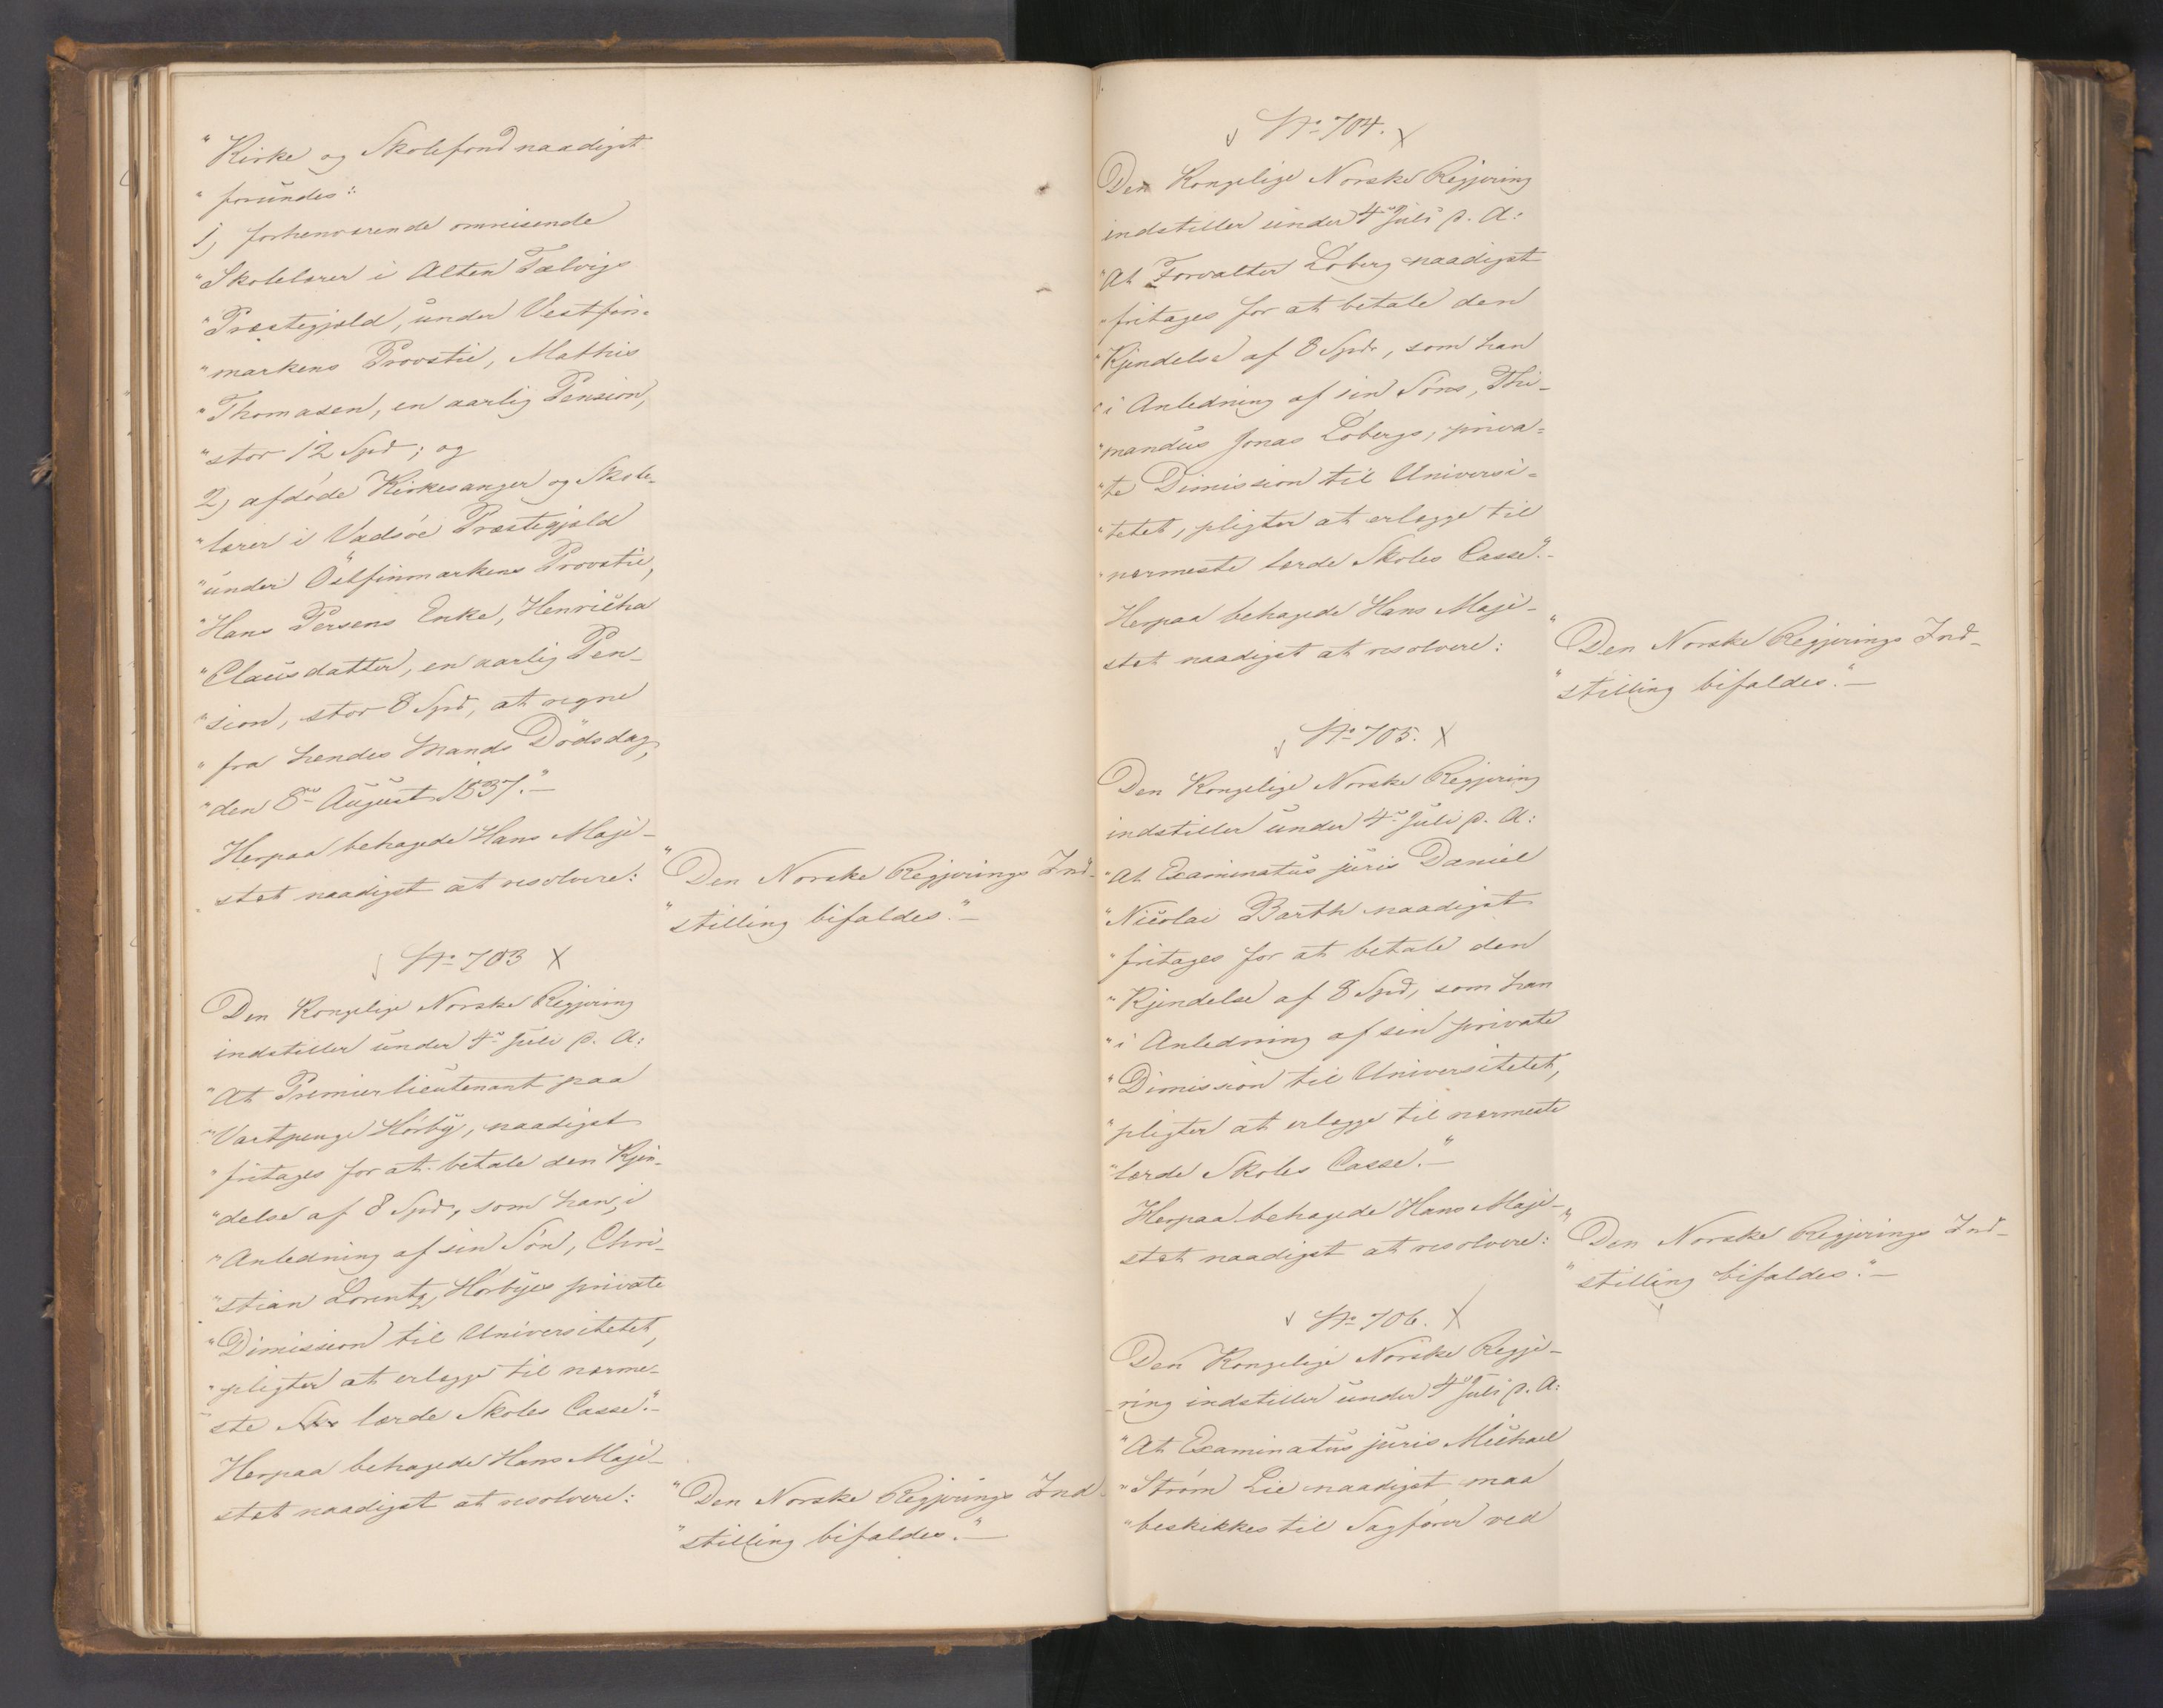 "Kirke og Skolefond naadigst
"forundes:
1, forhenværende omreisende
"Skolelærer i Alten Talvigs
"Præstegjæld, under Vestfin-
"markens Provstie, Mathis
"Thomasen, en aarlig Pension,
"stor 12 Spd; og
2, afdøde Kirkesanger og Skole-
"lærer i Vadsöe Præstegjæld
"under Östfinmarkens Provstie,
"Hans Persens Enke, Henricha
"Clausdatter, en aarlig Pen-
"sion, stor 8 Spd, at regne
"fra hendes Mands Dødsdag,
"den 8de August 1837."-
Herpaa behagede Hans Maje-
stæt naadigst at resolvere:
"Den Norske Regjerings Ind-
"stilling bifaldes."-
No 703
Den Kongelige Norske Regjering
indstiller under 4de Juli p. A:
"At Premierlieutenant paa
"Vartpenge Hörby, naadigst
"fritages for at betale den Kjen-
"delse af 8 Spd, som han, i
"Anledning af sin Sön, Chri-
"stian Lorentz Hörbyes private
"Dimission til Universitetet,
"pligter at erlægge til nærme-
"ste lærde Skoles Casse."-
Herpaa behagede Hans Maje-
stæt naadigst at resolvere:
"Den Norske Regjerings Ind-
"stilling bifaldes."-
No 704.
Den Kongelige Norske Regjering
indstiller under 4de Juli p. A:
"At Forvalter Löberg naadigst
"fritages for at betale den
"Kjendelse af 8 Spd, som han
"i Anledning af sin Söns, Thi-
"mandus Jonas Löbergs, priva-
"te Dimission til Universi-
"tetet, pligter at erlægge til
"nærmeste lærde Skoles Casse."-
Herpaa behagede Hans Maje-
stæt naadigst at resolvere:
"Den Norske Regjerings Ind-
"stilling bifaldes."-
No 705.
Den Kongelige Norske Regjering
indstiller under 4de Juli p. A:
"At Examinatus juris Daniel
"Nicolai Barth naadigst
"fritages for at betale den
"Kjendelse af 8 Spd, som han
"i Anledning af sin private
"Dimission til Universitetet,
"pligter at erlægge til nærmeste
"lærde Skoles Casse."-
Herpaa behagede Hans Maje-
stæt naadigst at resolvere:
"Den Norske Regjerings Ind-
"stilling bifaldes."-
No 706.
Den Kongelige Norske Regje-
ring indstiller under 4de Juli p. A:
"At Examinatus juris Michael
"Strøm Lie naadigst maa
"beskikkes til Sagfører ved